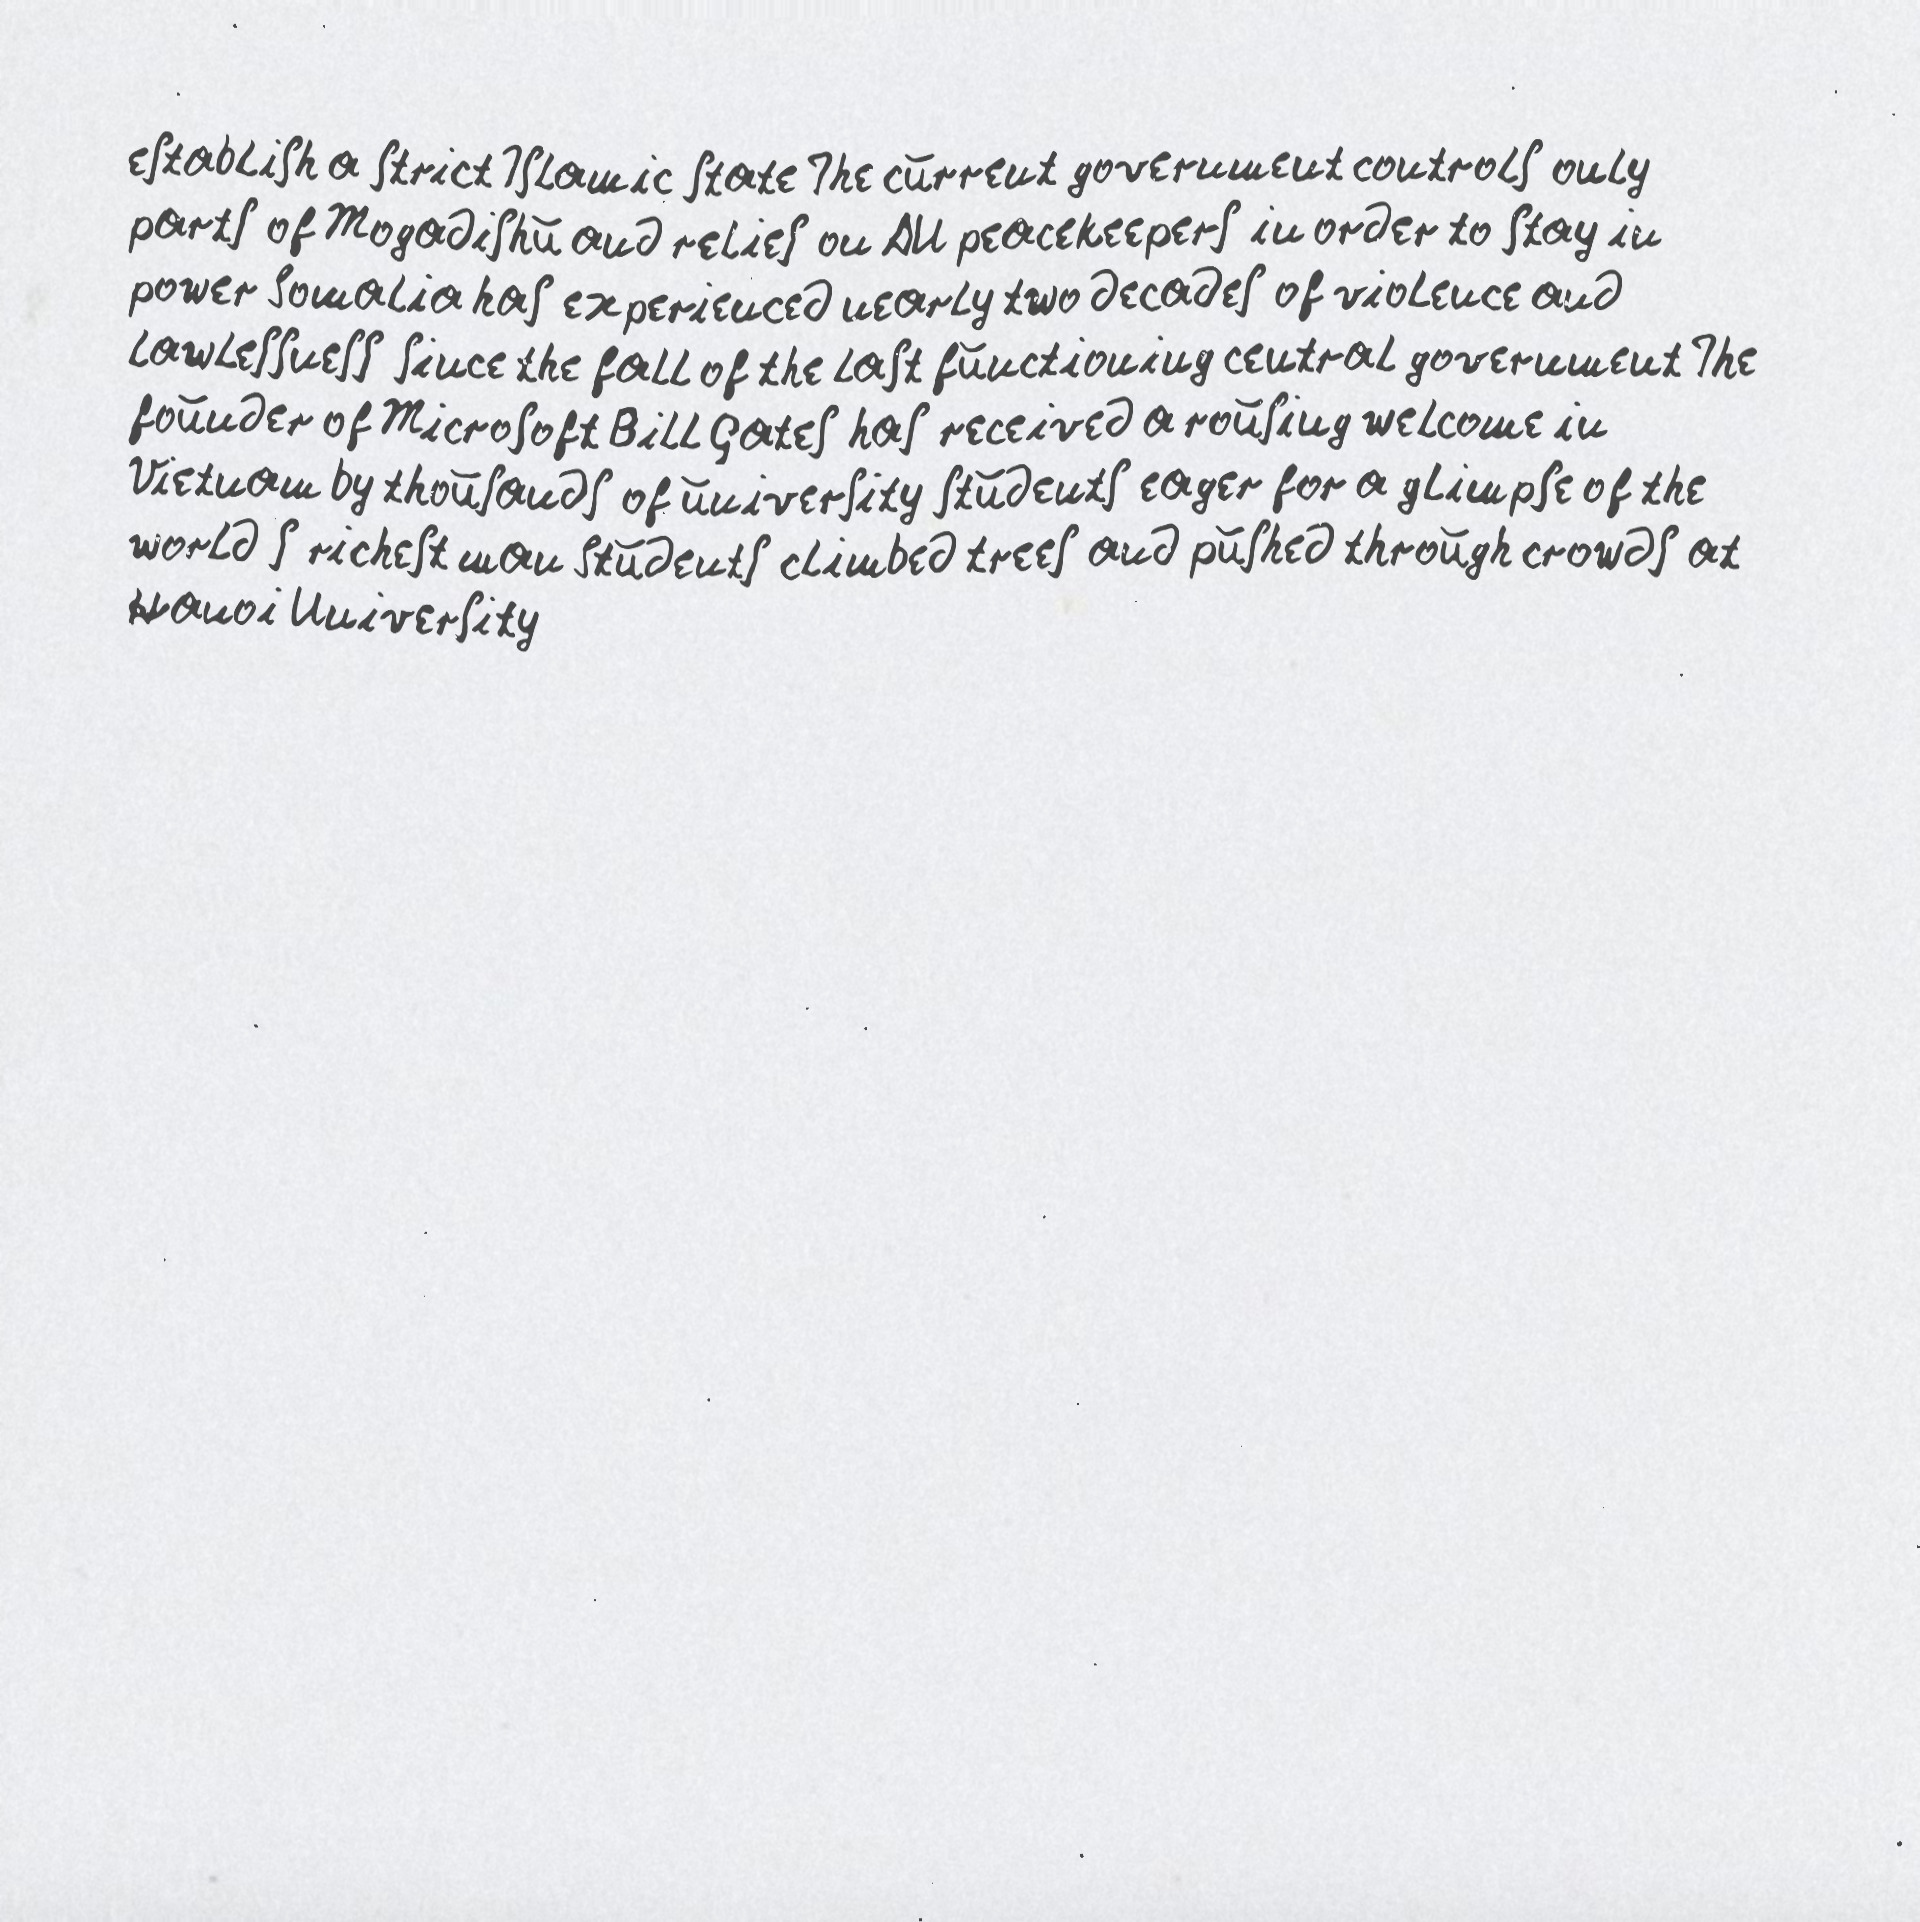 establish a strict Islamic state The current government controls only
parts of Mogadishu and relies on AU peacekeepers in order to stay in
power Somalia has experienced nearly two decades of violence and
lawlessness since the fall of the last functioning central government The
founder of Microsoft Bill Gates has received a rousing welcome in
Vietnam by thousands of university students eager for a glimpse of the
world s richest man Students climbed trees and pushed through crowds at
Hanoi University